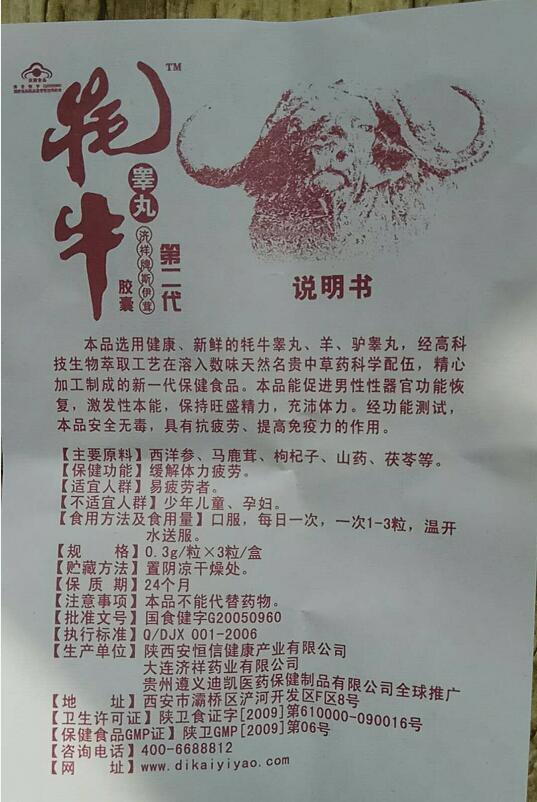 牦牛
TM
睾丸
济祥牌斯伊茸
胶囊
第二代
说明书
本品选用健康、新鲜的牦牛睾丸、羊、驴睾丸，经高科
技生物萃取工艺在溶入数味天然名贵中草药科学配伍，精心
加工制成的新一代保健食品。本品能促进男性性器官功能恢
复，激发性本能，保持旺盛精力，充沛体力。经功能测试，
本品安全无毒，具有抗疲劳、提高免疫力的作用。
【主要原料】西洋参、马鹿茸、枸杞子、山药、茯苓等。
【保健功能】缓解体力疲劳。
【适宜人群】易疲劳者。
【不适宜人群】少年儿童、孕妇。
【食用方法及食用量】口服，每日一次，一次1-3粒，温开
水送服。
【规 格】0.3g/粒×3粒/盒
【贮藏方法】置阴凉干燥处。
【保 质 期】24个月
【注意事项】本品不能代替药物。
【批准文号】国食健字G20050960
【执行标准】Q/DJX 001-2006
【生产单位】陕西安恒信健康产业有限公司
大连济祥药业有限公司
贵州遵义迪凯医药保健制品有限公司全球推广
【地 址】西安市灞桥区浐河开发区F区8号
【卫生许可证】陕卫食证字[2009]第610000-090016号
【保健食品GMP证】陕卫GMP[2009]第06号
【咨询电话】400-6688812
【网 址】www.dikaiyiyao.com